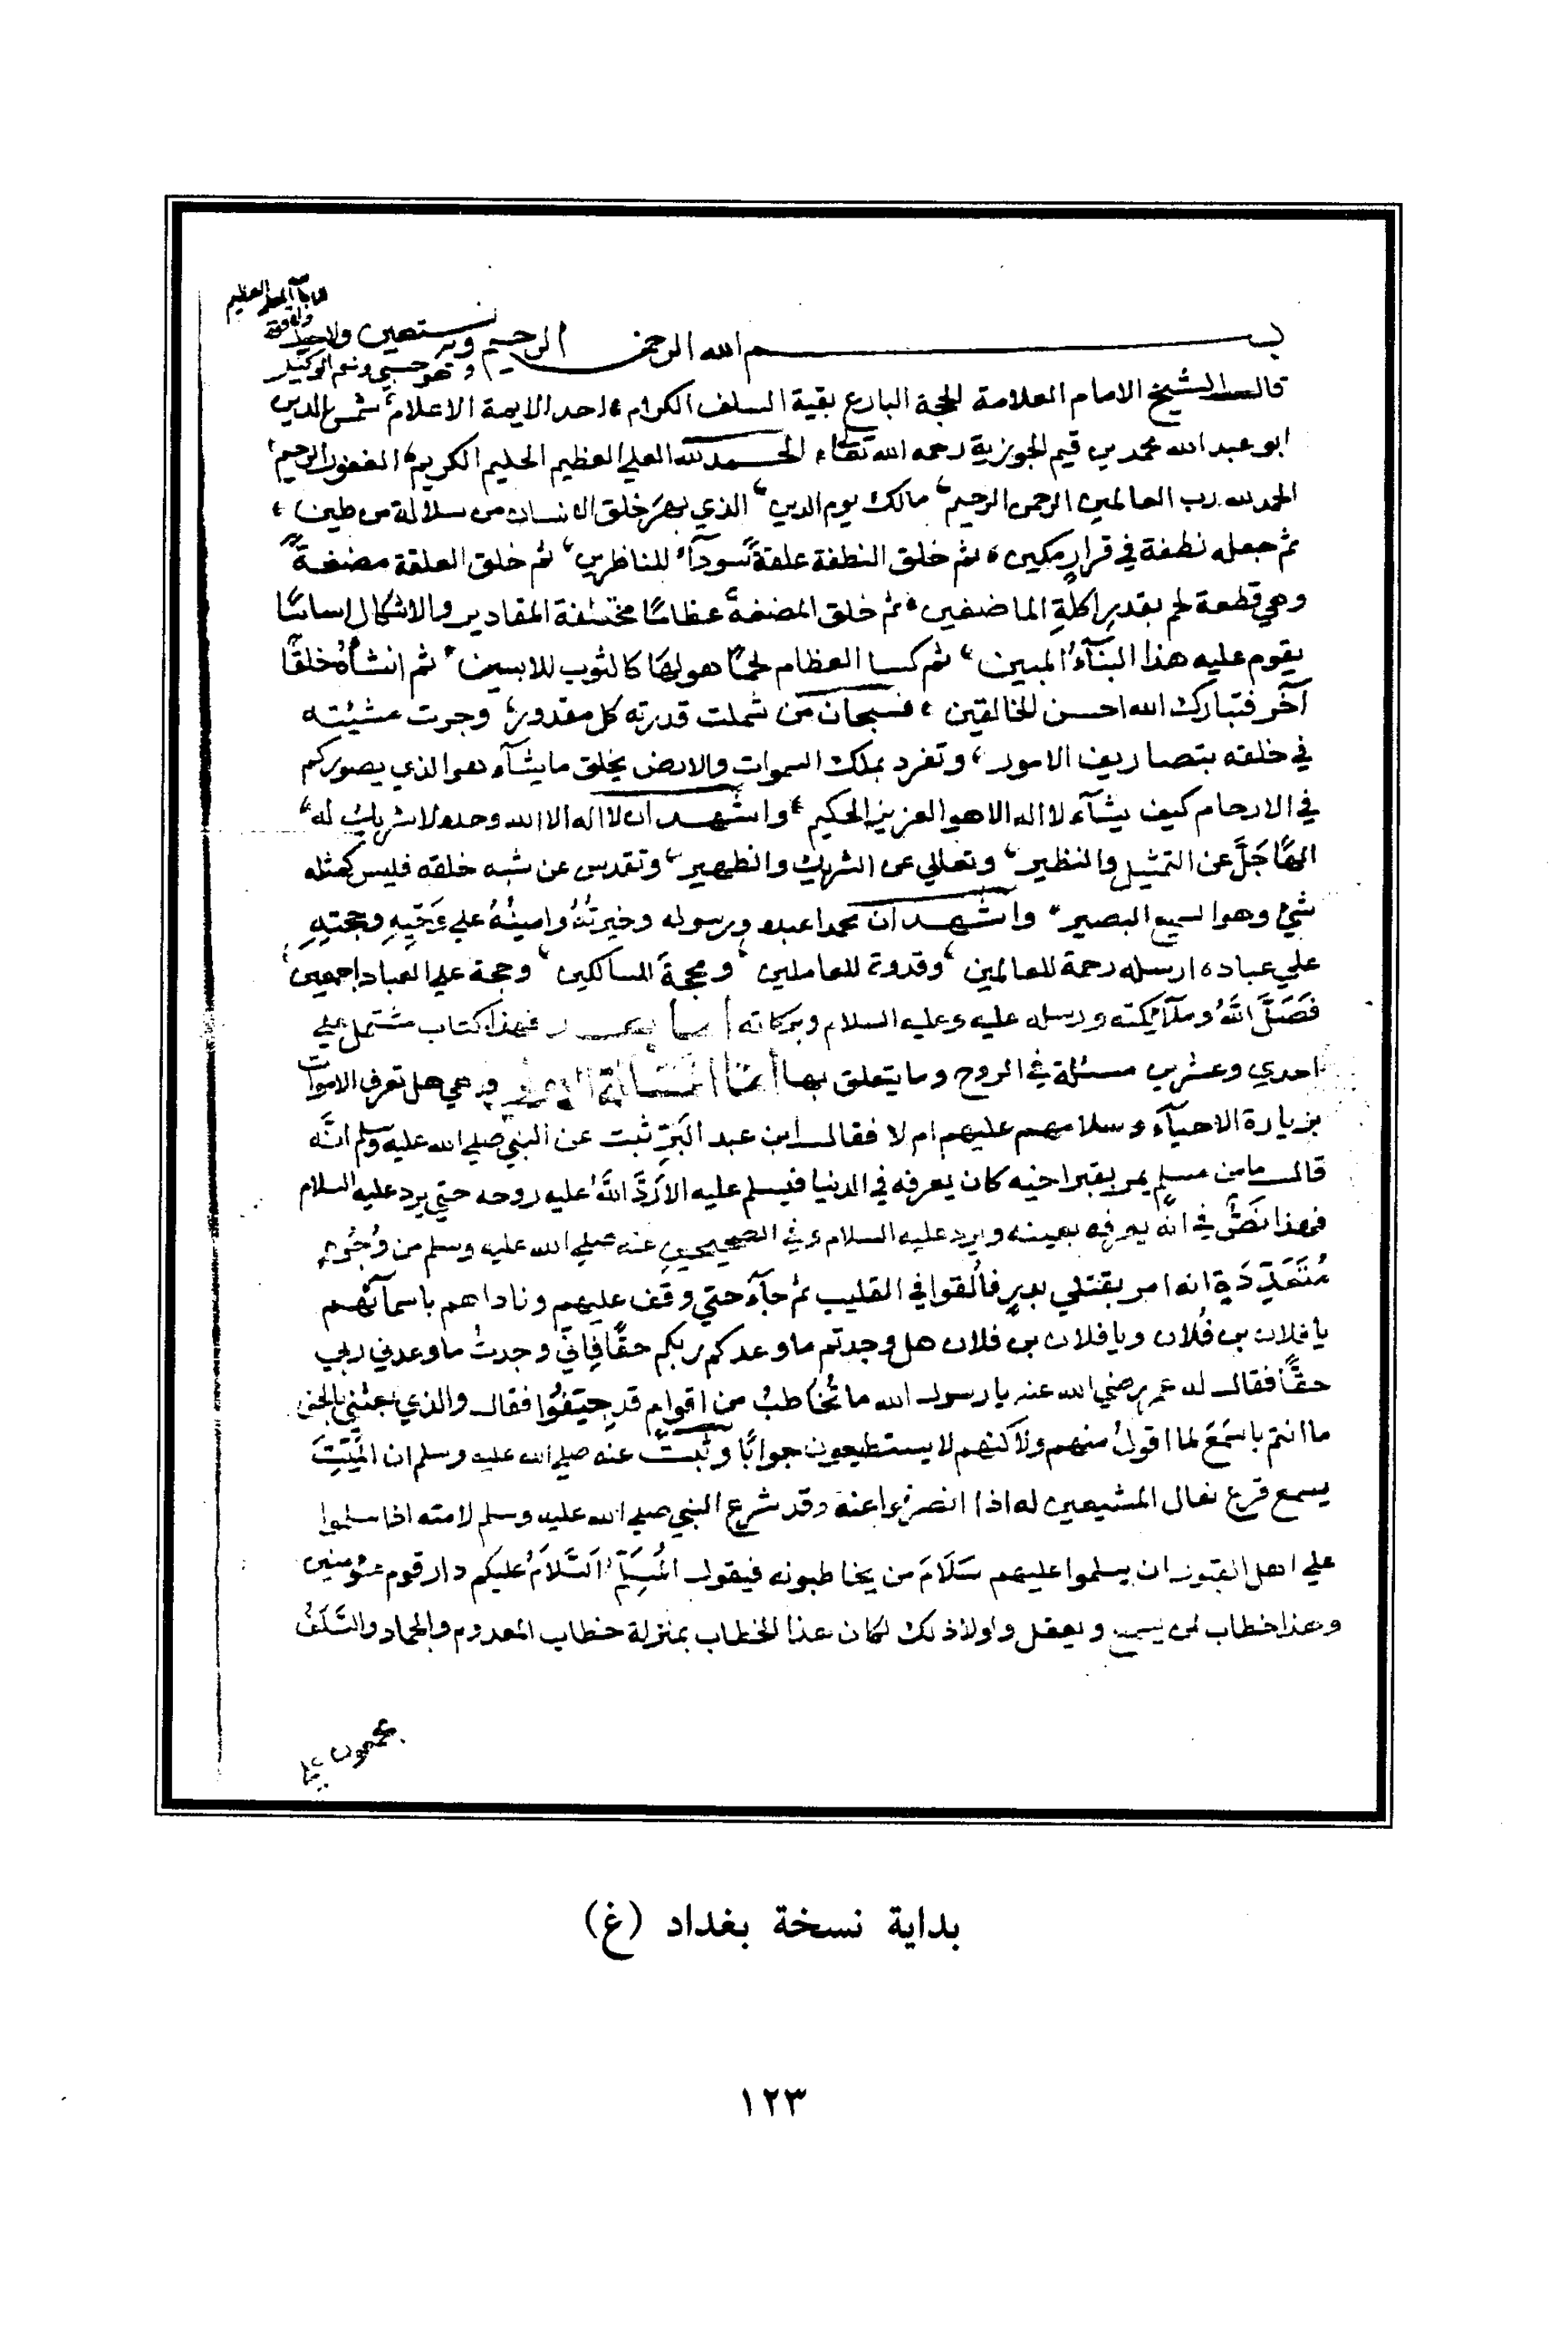 بسم الله الرحمن الرحيم وبه نستعين ولا حول
ولا قوة
الا بالله العلي العظيم
وهو حسبي ونعم الوكيل
قال الشيخ الامام العلامة الحجة البارع بقية السلف الكرام، احد الايمة الاعلام، شمس الدين
ابو عبد الله محمد بن قيم الجوزية رحمه الله تعالى، الحمد لله العلي العظيم الحليم الكريم، الغفور الرحيم،
الحمد لله رب العالمين الرحمن الرحيم، مالك يوم الدين، الذي خلق الانسان من سلالة من طين،
ثم جعله نطفة في قرارٍ مكين، ثم خلق النطفة علقةً سودآء للناظرين، ثم خلق العلقة مضغةً
وهي قطعة لحم بقدر اكلةِ الماضغين، ثم خلق المضغة عظامًا مختلفة المقادير والاشكال اساسًا
يقوم عليه هذا البنآءُ المبين، ثم كسا العظام لحمًا هو لها كالثوب للابسين، ثم انشأهُ خلقًا
آخر فتبارك الله احسن الخالقين، فسبحان من شملت قدرته كل مقدور، وجرت مشيئته
في خلقه بتصاريف الامور، وتفرد بملك السموات والارض يخلق ما يشآء هو الذي يصوركم
في الارحام كيف يشآء لا اله الا هو العزيز الحكيم، واشهد ان لا اله الا الله وحده لا شريك له،
الهًا جَلَّ عن التمثيل والنظير، وتعالي عن الشريك والظهير، وتقدس عن شبه خلقه فليس كمثله
شيء وهو السميع البصير، واشهد ان محمدا عبده ورسوله وخيرتُهُ وامينُهُ علي وَحْيِهِ وحجتِهِ
علي عباده ارسله رحمة للعالمين، وقدوة للعاملين، ومحجةَ للسالكين، وحجة علي العباد اجمعين،
فَصَلَّ اللَّهُ وملآيكته ورسله عليه وعليه السلام وبركاته اما بعد فهذا كتاب مشتمل علي
احدي وعشرين مسئلة في الروح وما يتعلق بها اما المسألة الاولى وهي هل تعرف الاموات
بزيارة الاحيآء وسلامهم عليهم ام لا فقال ابن عبد البَرِّ ثبت عن النبي صلي الله عليه وسلم انَّه
قال ما من مسلم يمر بقبر اخيه كان يعرفه في الدنيا فيسلم عليه الا رَدَّ اللَّهُ عليه روحه حتي يرد عليه السلام
فهذا نَصٌّ في انه يعرفه بعينه ويرد عليه السلام وفي الصحيحين عنه صلي الله عليه وسلم من وُجُوهٍ
مُتَعَدِّدَةٍ انه امر بقتلي بدرٍ فأُلقوا في القليب ثم جآءَ حتي وقف عليهم وناداهم باسمآئهم
يا فلان بن فُلان ويا فلان بن فلان هل وجدتم ما وعدكم ربكم حقًّا فاني وجدتُ ما وعدني ربي
حقًّا فقال له عمر رضي الله عنه يا رسول الله ما تُخاطبُ من اقوامٍ قد جيّفُوا فقال والذي بعثني بالحق
ما انتم باسمَعَ لما اقولُ منهم ولاكنهم لا يستطيعون جوابًا وثبتَ عنه صلي الله عليه وسلم ان الميّتَ
يسمع قرع نعال المشيعين له اذا انصرفوا عنه وقد شرع النبي صلي الله عليه وسلم لامته اذا سلموا
علي اهل القبور ان يسلموا عليهم سَلَامَ من يخاطبونه فيقول المُسَلِّمُ السَّلَامُ عليكم دار قوم مؤمنين
وهذا خطاب لمن يسمع ويعقل ولولا ذلك لكان هذا الخطاب بمنزلة خطاب المعدوم والجماد والسَّلَفُ
مجمعون علي
بداية نسخة بغداد (غ)
١٢٣